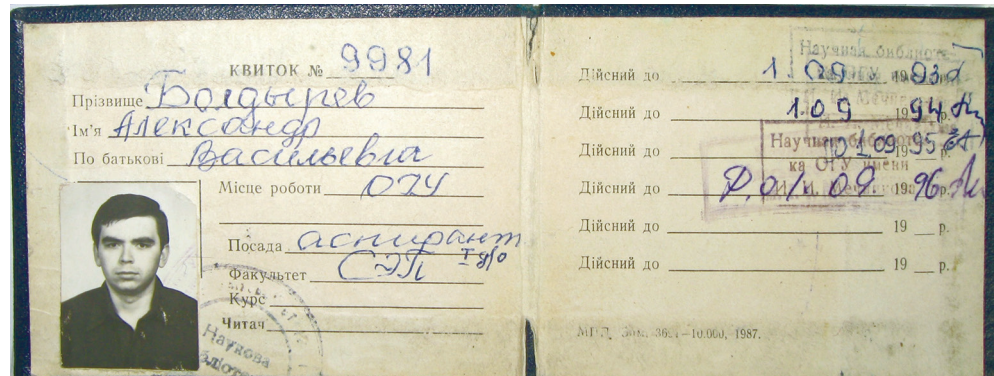 КВИТОК № 9981
Прізвище Болдырев
Ім'я Александр
По батькові Васильевич
Місце роботи ОГУ
Посада аспирант
Факультет СЭП
Курс
Читач
Наукова
Дійсний до 1.09 1993 р.
Дійсний до 1.09 1994 р.
Дійсний до 01.09 1995 р.
Дійсний до 01.09 1996 р.
Дійсний до 19 р.
Дійсний до 19 р.
Научная библиоте-
ка ОГУ имени
И. И. Мечникова
10.000, 1987.